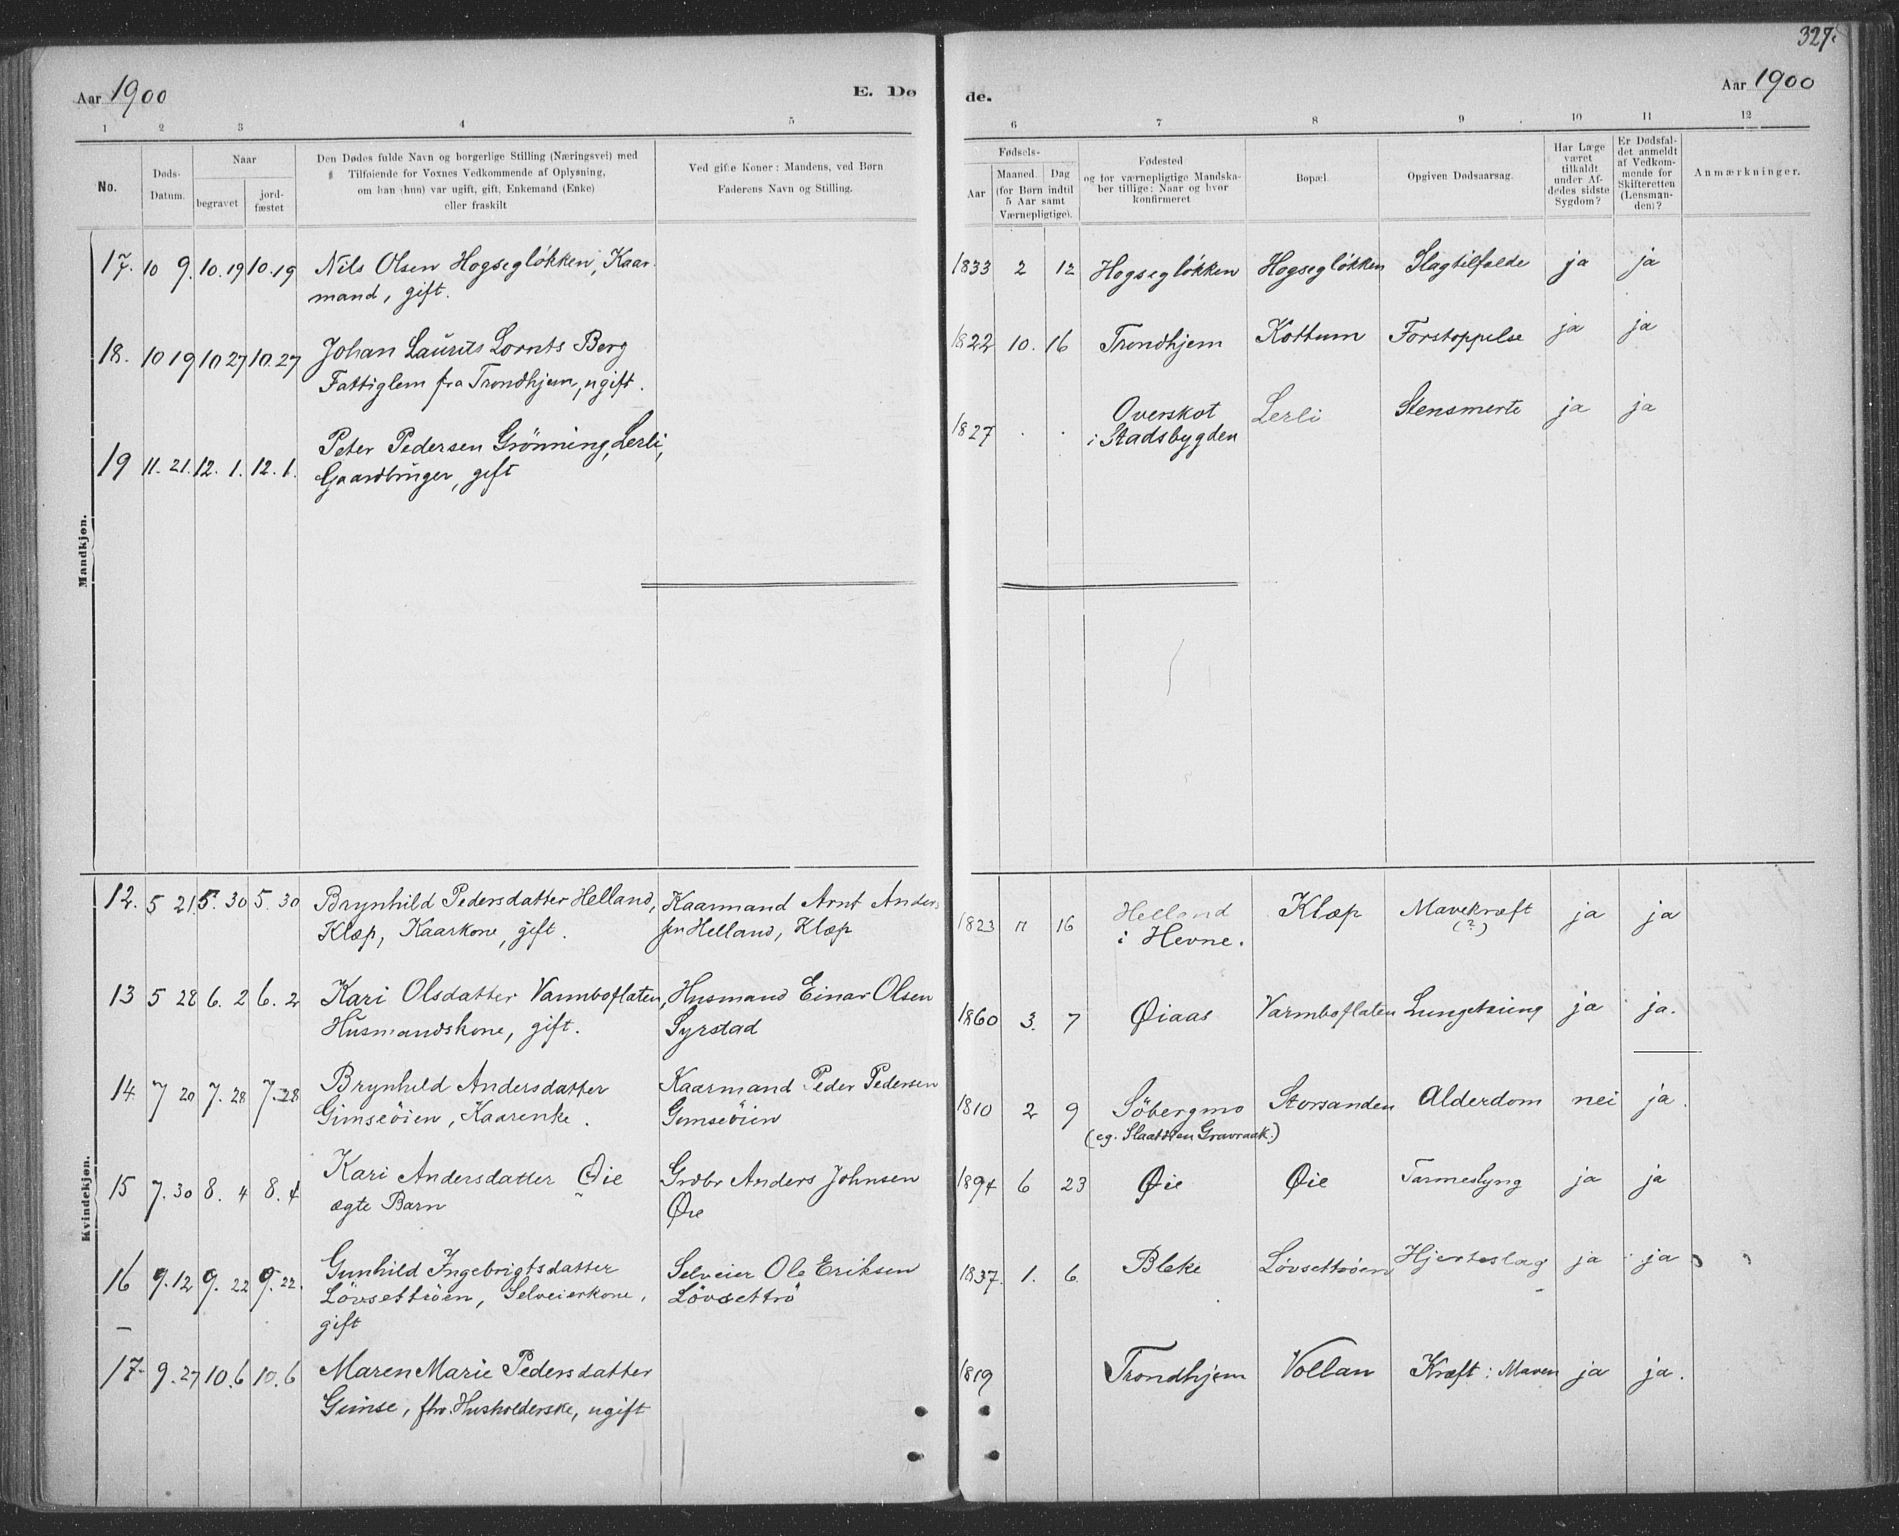 327.
Aar 1900
E. Dø
de.
Aar 1900
1 2 3 4 5 6 7 8 9 10 11 12
No.
Døds-
Datum.
Naar
begravet
jord-
fæstet
Den Dødes fulde Navn og borgerlige Stilling (Næringsvei) med
Tilføiende for Voxnes Vedkommende af Oplysning,
om han (hun) var ugift, gift, Enkemand (Enke)
eller fraskilt
Ved gifte Koner: Mandens, ved Børn
Faderens Navn og Stilling.
Fødsels-
Aar
Maaned. Dag
(for Børn indtil
5 Aar samt
Værnepligtige).
Fødested
og for værnepligtige Mandska-
ber tillige: Naar og hvor
konfirmeret
Bopæl.
Opgiven Dødsaarsag.
Har Læge
været
tilkaldt
under Af-
dødes sidste
Sygdom?
Er Dødsfal-
det anmeldt
af Vedkom-
mende for
Skifteretten
(Lensman-
den)?
Anmærkninger.
Mandkjøn.
17. 10 9. 10.19 10.19 Nils Olsen Hogsegløkken, Kaar-
mand, gift.
1833 2 12 Hogsegløkken Hogsegløkken Slagtilfælde ja ja
18. 10 19 10 27 10.27 Johan Laurits Lornts Berg
Fattiglem fra Trondhjem, ugift.
1822 10. 16 Trondhjem Kottum Forstoppelse ja ja
19 11. 21. 12. 1. 12. 1. Peter Pedersen Grönning, Lerli,
Gaardbruger, gift
1827 . . Overskot
i Stadsbygden
Lerli Stensmerte ja ja
Kvindekjøn.
12. 5 21 5. 30 5. 30 Brynhild Pedersdatter Helland,
Klæp, Kaarkone, gift.
Kaarmand Arnt Anders
sen Helland, Klæp
1823 16 Helland
i Hevne.
Klæp Mavekræft
(?)
ja ja
13 5 28 6. 2 6. 2 Kari Olsdatter Varmboflaten,
Husmandskone, gift.
Husmand Einar Olsen
Syrstad
1860 3. 7 Øiaas Varmboflaten Lungetæring ja ja.
14 7 20 7. 28 7. 28 Brynhild Andersdatter
Gimseöien, Kaarenke.
Kaarmand Peder Pedersen
Gimseöien
1810 2 9 Söbergmo
(eg. Gravraak.)
Storsanden Alderdom nei ja.
15 7. 30 8. 4 8. 4 Kari Andersdatter Øie
ægte Barn
Grdbr Anders Johnsen
Øie
1894 6 23 Øie Øie Tarmeslyng ja ja
16 9. 12 9. 22 9. 22. Gunhild Ingebrigtsdatter
Løvsettrøen, Selveierkone,
gift
Selveier Ole Eriksen
Løvsettrö
1837. 1. 6. Bleke Løvsettrøen Hjerteslag ja ja
17. 9. 27 10. 6 10. 6 Maren Marie Pedersdatter
Gimse, fhv. Husholderske, ugift
1819 Trondhjem Vollan Kræft i Maven ja ja.